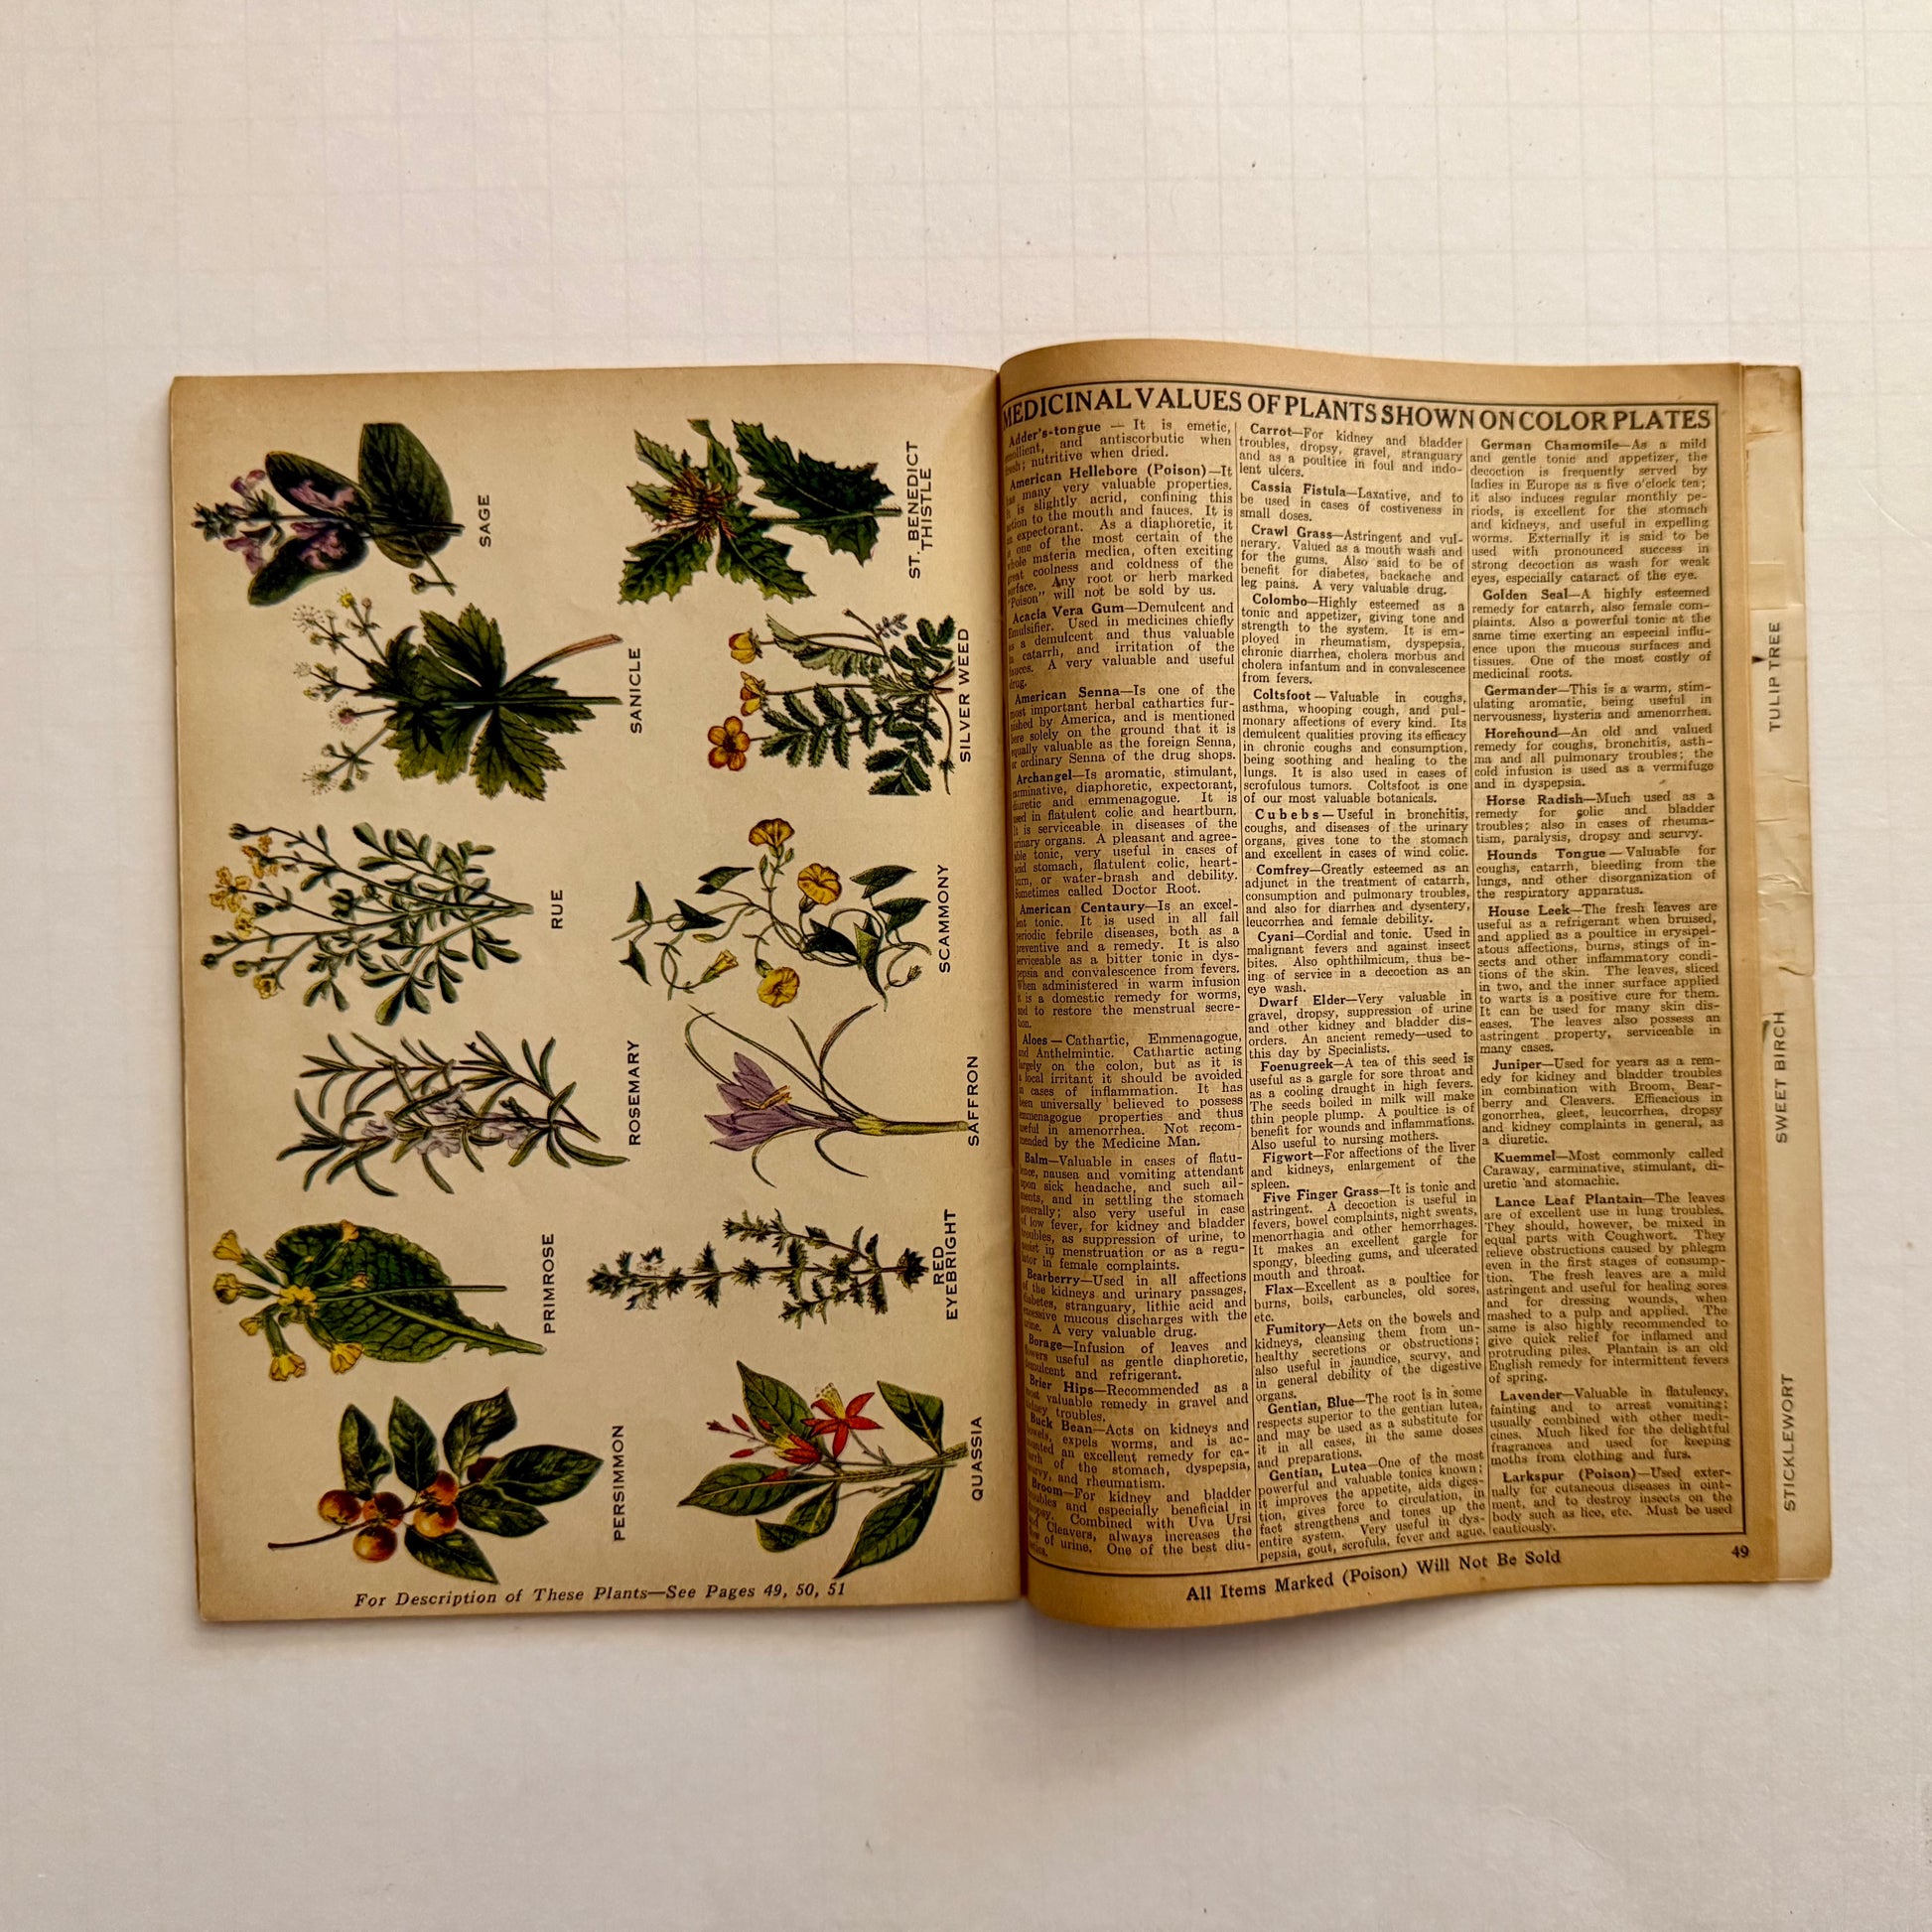 SAGE
ST. BENEDICT
THISTLE
SANICLE
SILVER WEED
RUE
SCAMMONY
ROSEMARY
SAFFRON
PRIMROSE
RED
EYEBRIGHT
PERSIMMON
QUASSIA
For Description of These Plants—See Pages 49, 50, 51
MEDICINAL VALUES OF PLANTS SHOWN ON COLOR PLATES
Adder's-tongue — It is emetic,
emollient, and antiscorbutic when
fresh; nutritive when dried.
American Hellebore (Poison)—It
has many very valuable properties.
It is slightly acrid, confining this
action to the mouth and fauces. It is
an expectorant. As a diaphoretic, it
is one of the most certain of the
whole materia medica, often exciting
great coolness and coldness of the
surface. Any root or herb marked
"Poison" will not be sold by us.
Acacia Vera Gum—Demulcent and
Emulsifier. Used in medicines chiefly
as a demulcent and thus valuable
in catarrh, and irritation of the
fauces. A very valuable and useful
drug.
American Senna—Is one of the
most important herbal cathartics fur-
nished by America, and is mentioned
here solely on the ground that it is
equally valuable as the foreign Senna,
or ordinary Senna of the drug shops.
Archangel—Is aromatic, stimulant,
carminative, diaphoretic, expectorant,
diuretic and emmenagogue. It is
used in flatulent colic and heartburn.
It is serviceable in diseases of the
urinary organs. A pleasant and agree-
able tonic, very useful in cases of
acid stomach, flatulent colic, heart-
burn, or water-brash and debility.
Sometimes called Doctor Root.
American Centaury—Is an excel-
lent tonic. It is used in all fall
periodic febrile diseases, both as a
preventive and a remedy. It is also
serviceable as a bitter tonic in dys-
pepsia and convalescence from fevers.
When administered in warm infusion
it is a domestic remedy for worms,
and to restore the menstrual secre-
tion.
Aloes — Cathartic, Emmenagogue,
and Anthelmintic. Cathartic acting
largely on the colon, but as it is
a local irritant it should be avoided
in cases of inflammation. It has
been universally believed to possess
emmenagogue properties and thus
useful in amenorrhea. Not recom-
mended by the Medicine Man.
Balm—Valuable in cases of flatu-
lence, nausea and vomiting attendant
upon sick headache, and such ail-
ments, and in settling the stomach
generally; also very useful in case
of low fever, for kidney and bladder
troubles, as suppression of urine, to
assist in menstruation or as a regu-
lator in female complaints.
Bearberry—Used in all affections
of the kidneys and urinary passages,
diabetes, stranguary, lithic acid and
excessive mucous discharges with the
urine. A very valuable drug.
Borage—Infusion of leaves and
flowers useful as gentle diaphoretic,
demulcent and refrigerant.
Brier Hips—Recommended as a
most valuable remedy in gravel and
kidney troubles.
Buck Bean—Acts on kidneys and
bowels, expels worms, and is ac-
counted an excellent remedy for ca-
tarrh of the stomach, dyspepsia,
scurvy, and rheumatism.
Broom—For kidney and bladder
troubles and especially beneficial in
dropsy. Combined with Uva Ursi
and Cleavers, always increases the
flow of urine. One of the best diu-
retics.
Carrot—For kidney and bladder
troubles, dropsy, gravel, stranguary
and as a poultice in foul and indo-
lent ulcers.
Cassia Fistula—Laxative, and to
be used in cases of costiveness in
small doses.
Crawl Grass—Astringent and vul-
nerary. Valued as a mouth wash and
for the gums. Also said to be of
benefit for diabetes, backache and
leg pains. A very valuable drug.
Colombo—Highly esteemed as a
tonic and appetizer, giving tone and
strength to the system. It is em-
ployed in rheumatism, dyspepsia,
chronic diarrhea, cholera morbus and
cholera infantum and in convalescence
from fevers.
Coltsfoot — Valuable in coughs,
asthma, whooping cough, and pul-
monary affections of every kind. Its
demulcent qualities proving its efficacy
in chronic coughs and consumption,
being soothing and healing to the
lungs. It is also used in cases of
scrofulous tumors. Coltsfoot is one
of our most valuable botanicals.
Cubebs — Useful in bronchitis,
coughs, and diseases of the urinary
organs, gives tone to the stomach
and excellent in cases of wind colic.
Comfrey—Greatly esteemed as an
adjunct in the treatment of catarrh,
consumption and pulmonary troubles,
and also for diarrhea and dysentery,
leucorrhea and female debility.
Cyani—Cordial and tonic. Used in
malignant fevers and against insect
bites. Also ophthilmicum, thus be-
ing of service in a decoction as an
eye wash.
Dwarf Elder—Very valuable in
gravel, dropsy, suppression of urine
and other kidney and bladder dis-
orders. An ancient remedy—used to
this day by Specialists.
Foenugreek—A tea of this seed is
useful as a gargle for sore throat and
as a cooling draught in high fevers.
The seeds boiled in milk will make
thin people plump. A poultice is of
benefit for wounds and inflammations.
Also useful to nursing mothers.
Figwort—For affections of the liver
and kidneys, enlargement of the
spleen.
Five Finger Grass—It is tonic and
astringent. A decoction is useful in
fevers, bowel complaints, night sweats,
menorrhagia and other hemorrhages.
It makes an excellent gargle for
spongy, bleeding gums, and ulcerated
mouth and throat.
Flax—Excellent as a poultice for
burns, boils, carbuncles, old sores,
etc.
Fumitory—Acts on the bowels and
kidneys, cleansing them from un-
healthy secretions or obstructions;
also useful in jaundice, scurvy, and
in general debility of the digestive
organs.
Gentian, Blue—The root is in some
respects superior to the gentian lutea,
and may be used as a substitute for
it in all cases, in the same doses
and preparations.
Gentian, Lutea—One of the most
powerful and valuable tonics known;
it improves the appetite, aids diges-
tion, gives force to circulation, in
fact strengthens and tones up the
entire system. Very useful in dys-
pepsia, gout, scrofula, fever and ague.
German Chamomile—As a mild
and gentle tonic and appetizer, the
decoction is frequently served by
ladies in Europe as a five o'clock tea;
it also induces regular monthly pe-
riods, is excellent for the stomach
and kidneys, and useful in expelling
worms. Externally it is said to be
used with pronounced success in
strong decoction as wash for weak
eyes, especially cataract of the eye.
Golden Seal—A highly esteemed
remedy for catarrh, also female com-
plaints. Also a powerful tonic at the
same time exerting an especial influ-
ence upon the mucous surfaces and
tissues. One of the most costly of
medicinal roots.
Germander—This is a warm, stim-
ulating aromatic, being useful in
nervousness, hysteria and amenorrhea.
Horehound—An old and valued
remedy for coughs, bronchitis, asth-
ma and all pulmonary troubles; the
cold infusion is used as a vermifuge
and in dyspepsia.
Horse Radish—Much used as a
remedy for colic and bladder
troubles; also in cases of rheuma-
tism, paralysis, dropsy and scurvy.
Hounds Tongue — Valuable for
coughs, catarrh, bleeding from the
lungs, and other disorganization of
the respiratory apparatus.
House Leek—The fresh leaves are
useful as a refrigerant when bruised,
and applied as a poultice in erysipel-
atous affections, burns, stings of in-
sects and other inflammatory condi-
tions of the skin. The leaves, sliced
in two, and the inner surface applied
to warts is a positive cure for them.
It can be used for many skin dis-
eases. The leaves also possess an
astringent property, serviceable in
many cases.
Juniper—Used for years as a rem-
edy for kidney and bladder troubles
in combination with Broom, Bear-
berry and Cleavers. Efficacious in
gonorrhea, gleet, leucorrhea, dropsy
and kidney complaints in general, as
a diuretic.
Kuemmel—Most commonly called
Caraway, carminative, stimulant, di-
uretic and stomachic.
Lance Leaf Plantain—The leaves
are of excellent use in lung troubles.
They should, however, be mixed in
equal parts with Coughwort. They
relieve obstructions caused by phlegm
even in the first stages of consump-
tion. The fresh leaves are a mild
astringent and useful for healing sores
and for dressing wounds, when
mashed to a pulp and applied. The
same is also highly recommended to
give quick relief for inflamed and
protruding piles. Plantain is an old
English remedy for intermittent fevers
of spring.
Lavender—Valuable in flatulency,
fainting and to arrest vomiting;
usually combined with other medi-
cines. Much liked for the delightful
fragrances and used for keeping
moths from clothing and furs.
Larkspur (Poison)—Used exter-
nally for cutaneous diseases in oint-
ment, and to destroy insects on the
body such as lice, etc. Must be used
cautiously.
All Items Marked (Poison) Will Not Be Sold
49
TULIP TREE
SWEET BIRCH
STICKLEWORT